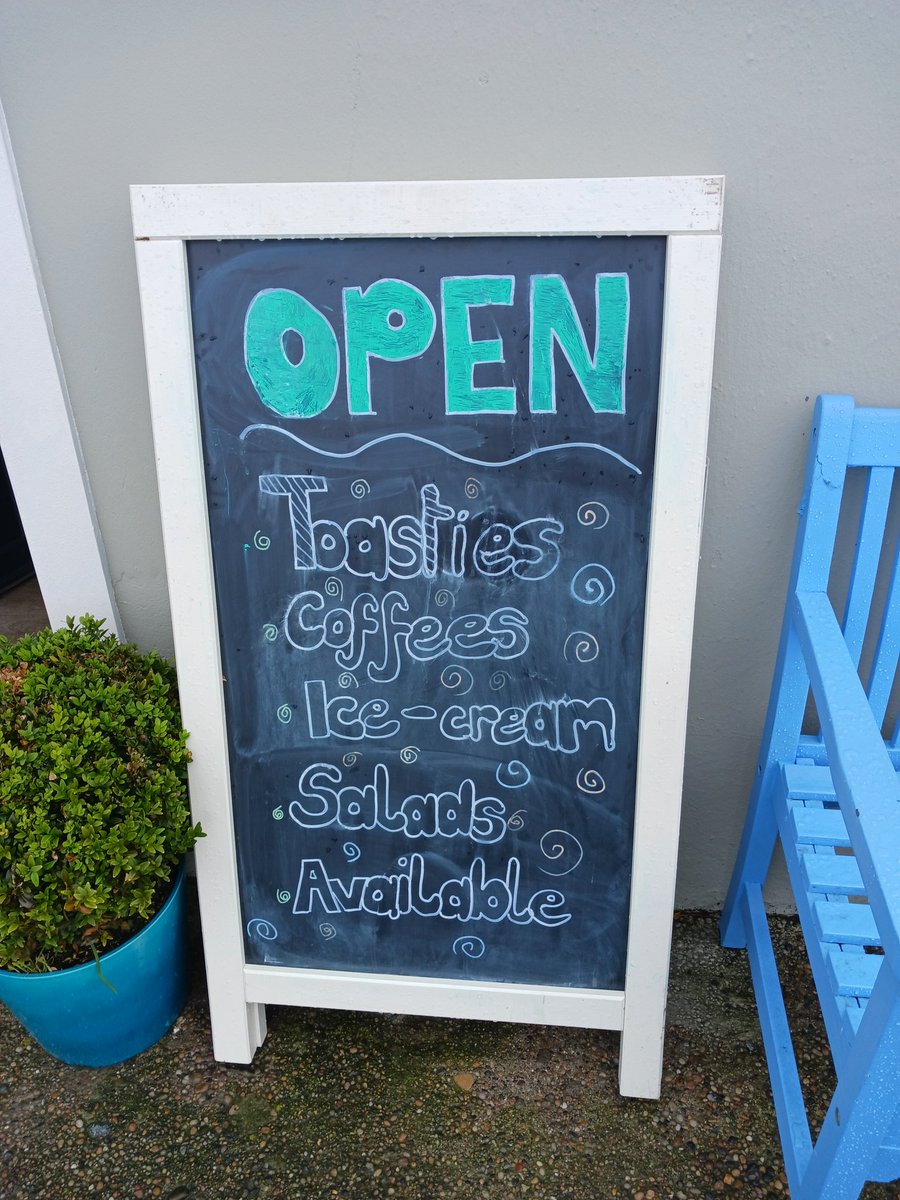 OPEN
Toasties
Coffees
Ice-cream
Salads
Available